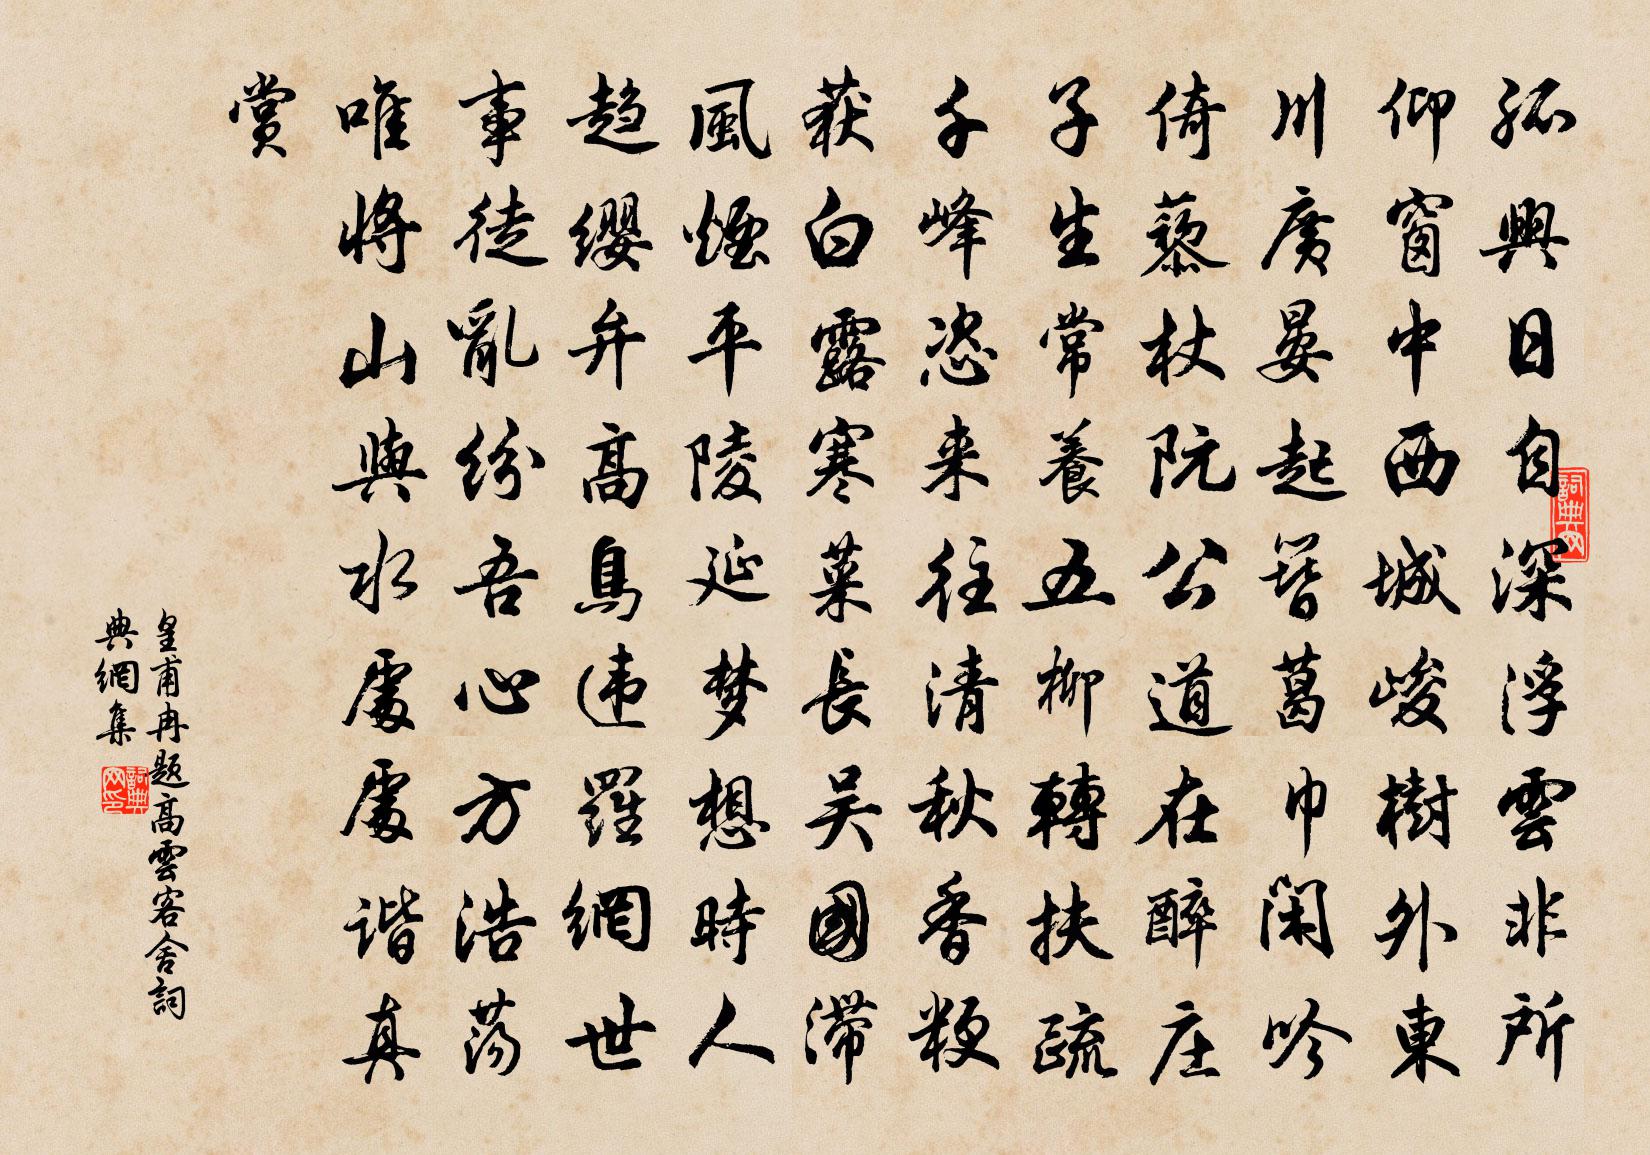 孤興日自深浮雲非所
仰窗中西城峻樹外東
川廣晏起簪葛巾閑吟
倚藜杖阮公道在醉庄
子生常養五柳轉扶疏
千峰恣来往清秋香粳
获白露寒菜長吴國滞
風煙平陵延梦想時人
趋缨弁高鳥违羅網世
事徒亂紛吾心方浩荡
唯將山與水處處谐真
赏
皇甫冉题高雲客舍詞
典網集
詞典网
詞典网印